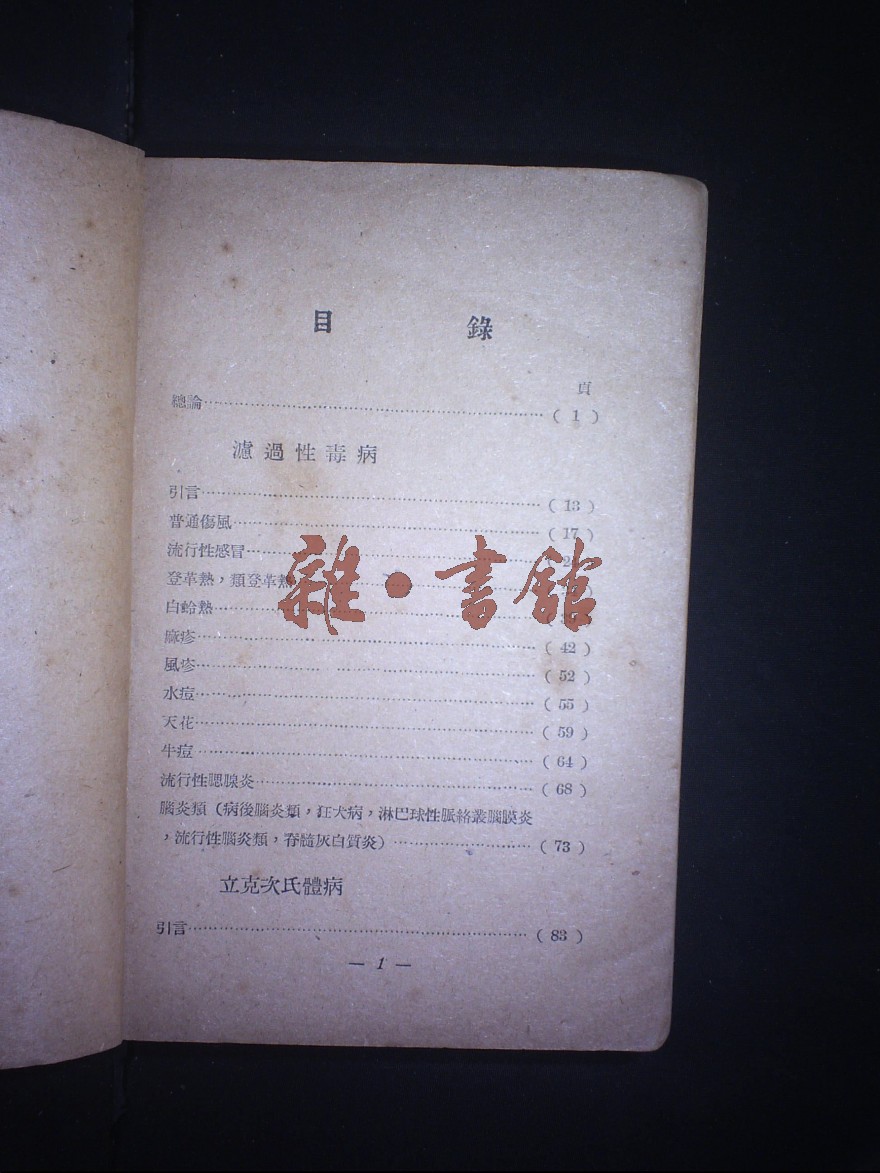 目 錄
頁
總論……………………………………( 1 )
濾過性毒病
引言……………………………………( 13 )
普通傷風………………………………( 17 )
流行性感冒……………………………( 2
登革熱，類登革熱
白蛉熱…………………………………
雜·書館
麻疹……………………………………( 42 )
風疹……………………………………( 52 )
水痘……………………………………( 55 )
天花……………………………………( 59 )
牛痘……………………………………( 64 )
流行性腮腺炎…………………………( 68 )
腦炎類（病後腦炎類，狂犬病，淋巴球性脈絡叢腦膜炎
，流行性腦炎類，脊髓灰白質炎）………………( 73 )
立克次氏體病
引言……………………………………( 83 )
— 1 —